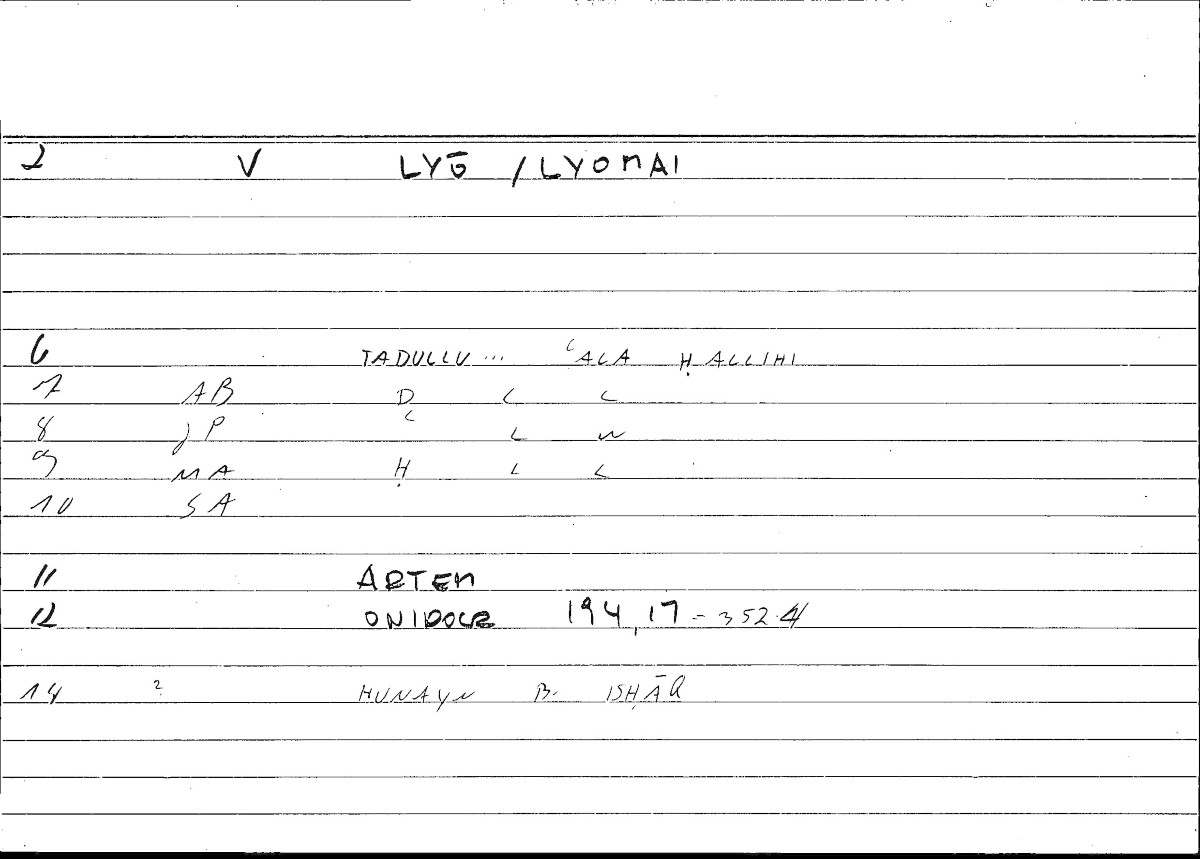 2 V LYŌ / LYOMAI
6 TADULLU... ʿALA ḤALLIHI
7 AB D L L
8 JP ʿ L W
9 MA Ḥ L L
10 SA
11 ARTEM
12 ONIDOCR 194,17 - 352.4
14 ? HUNAYN B. ISḤĀQ